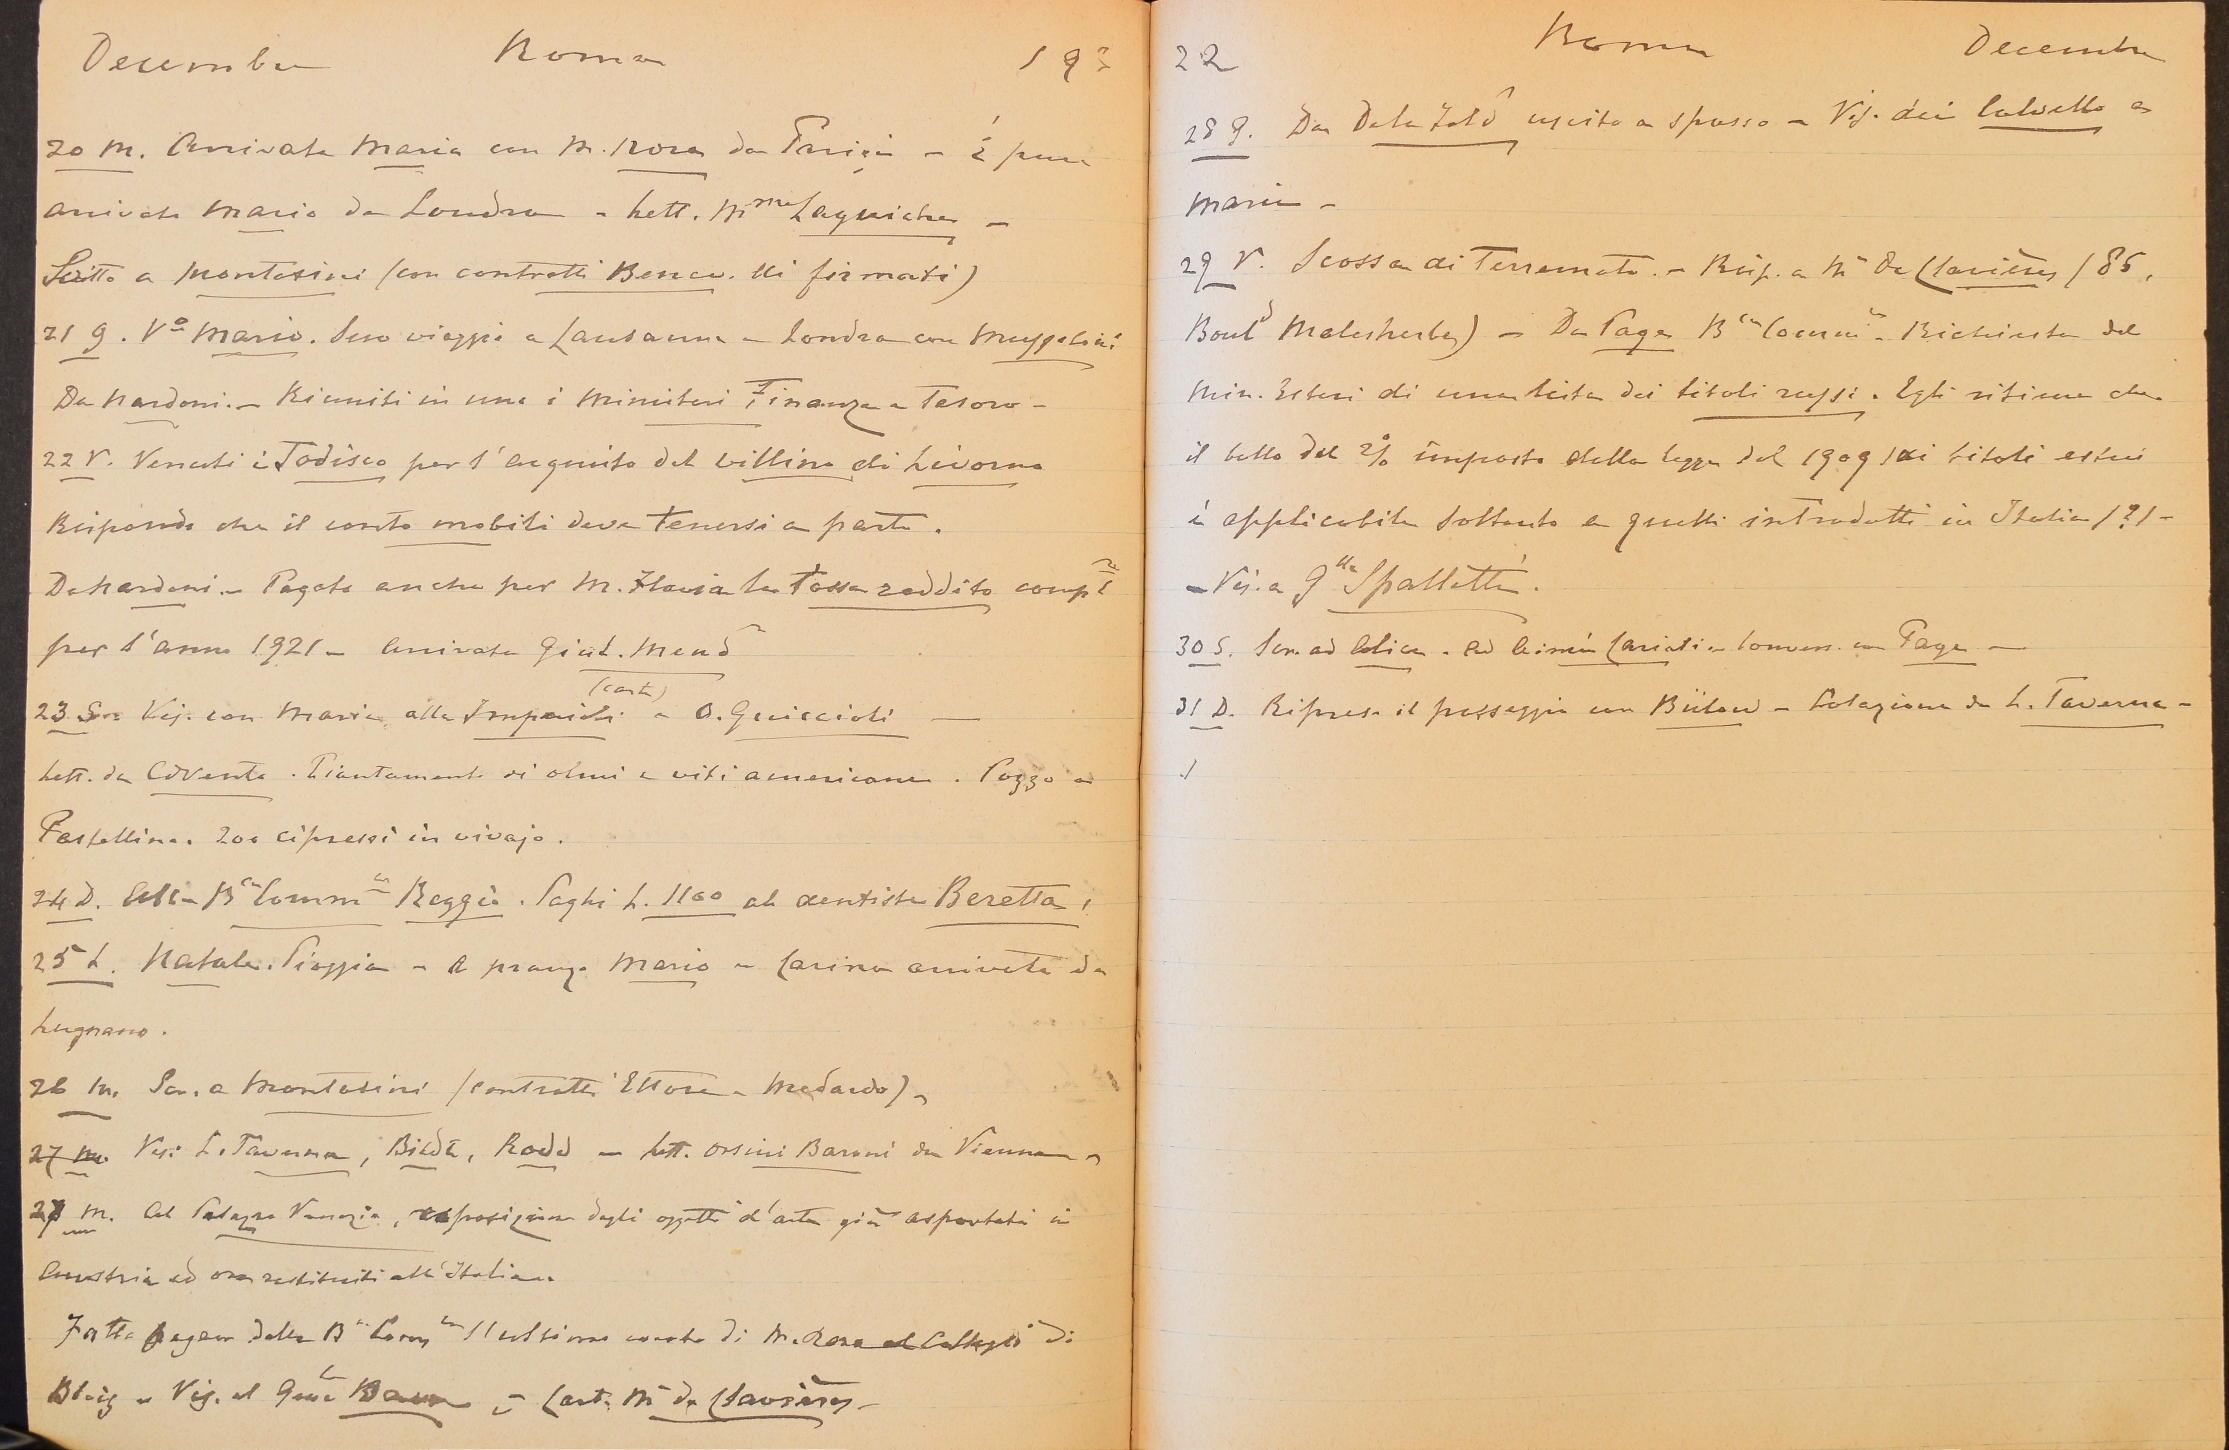 Decembre Roma 192
20 M. Arrivata Maria con M. Rosa da Parigi – È pure
arrivato Mario da Londra – Lett. Mme Laguiche –
Scritto a Montesini (con contratti firmati)
21 G. Vo Mario. Suo viaggio a Lausanna e Londra con Mussolini
Da Nardoni. – Riuniti in uno i Ministeri Finanze e Tesoro –
22 V. Venuti è Todisco per l'acquisto del villino di Livorno
Rispondo che il conto mobili deve tenersi a parte.
Da Nardoni. – Pagato anche per M. Flavia la Tassa reddito
per l'anno 1921 – Arrivata Giul.
(carta)
23 S. Vis. con Maria alla e O. Guiccioli —
Lett. da . Piantamento di olmi e viti americane. Pozzo a
Pastellina. 200 cipressi in vivajo.
24 D. Alla Bca Comm Reggio. Paghi L. 1100 al dentista Beretta.
25 L. Natale. Pioggia – A pranzo Mario e Carina arrivata da
Lugnano.
26 M. Scr. a Montesini (contratti Ettore e Medardo) –
27 M. Vis: L. Taverna, , Rodd – Lett. Orsini Baroni da Vienna –
27 M. Al Palazzo Venezia, esposizione degli oggetti d'arte già asportati in
Austria ed ora restituiti all'Italia.
Fatto pagare dalla Bca l'ultimo conto di M. Rosa al Collegio di
– Vis. al – Cart. Mse de Clavières –
22 Roma Decembre
28 G. Da uscito a spasso – Vis. dei Calvello a
Maria –
29 V. Scossa di Terremoto. – Risp. a Mse de Clavières (85,
Bould Malesherbes) – Da Page Bca Comm – Richiesta del
Min. Esteri di una lista dei titoli russi. Egli ritiene che
il bollo del 2% imposto della legge del 1909 sui titoli esteri
è applicabile soltanto a quelli introdotti in Italia (?) –
– Vis. a Spalletti.
30 S. Scr. ad Alice. – Conver. con Page —
31 D. Ripreso il passeggio con Bülow – Colazione da L. Taverna –